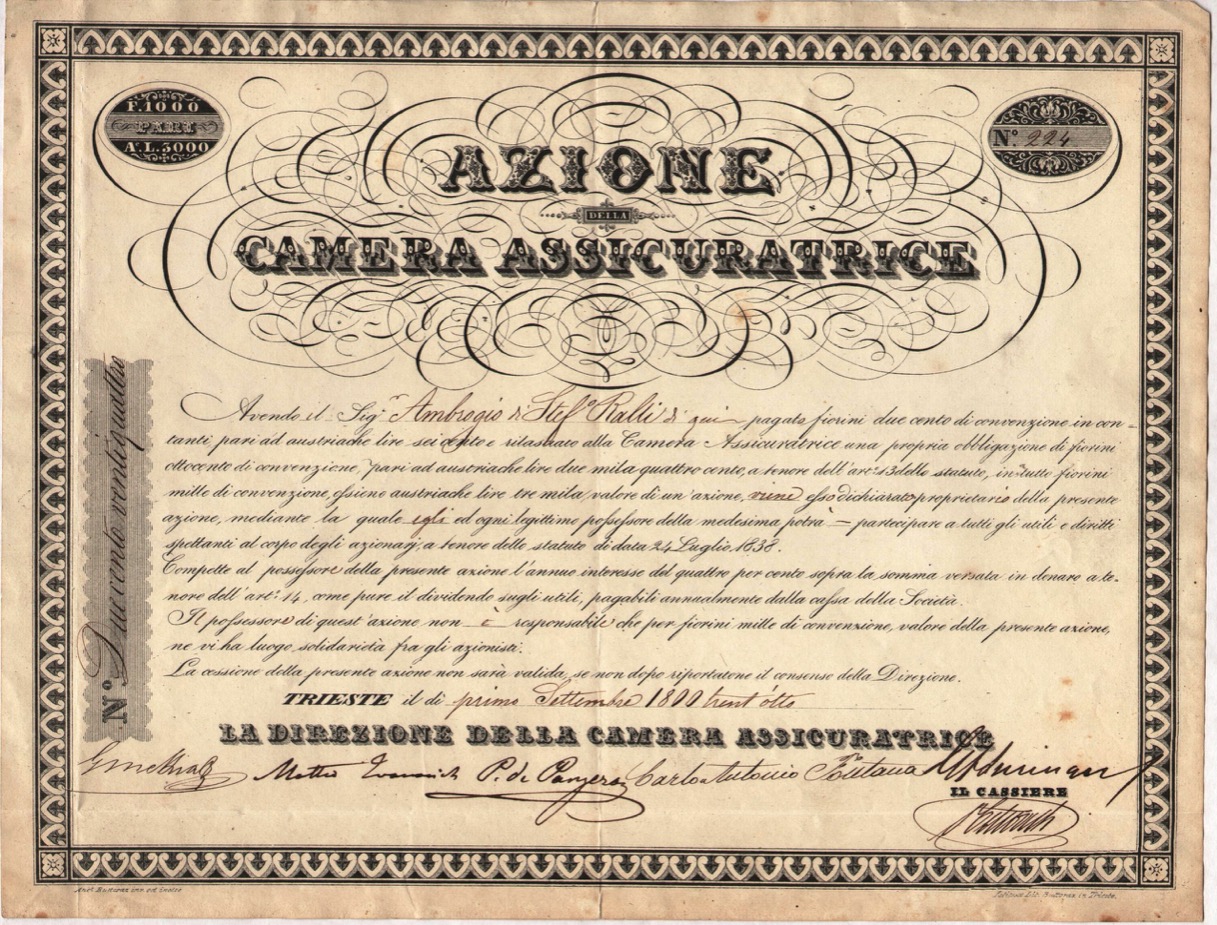 F. 1000
PARI
A. L. 3000
Nº 224
AZIONE
DELLA
CAMERA ASSICURATRICE
Nº Duecento ventiquattro
Avendo il Sigr Ambrogio di Stefº Ralli di qui pagato fiorini due cento di convenzione in con-
tanti, pari ad austriache lire sei cento e rilasciato alla Camera Assicuratrice una propria obbligazione di fiorini
ottocento di convenzione, pari ad austriache lire due mila quattro cento, a tenore dell'art: 13 dello statuto, in tutto fiorini
mille di convenzione, ossieno austriache lire tre mila, valore di un'azione, viene esso dichiarato proprietario della presente
azione, mediante la quale egli ed ogni legittimo possessore della medesima potrà — partecipare a tutti gli utili e diritti
spettanti al corpo degli azionarj, a tenore dello statuto di data 24 Luglio 1838.
Compette al possessore della presente azione l'annuo interesse del quattro per cento sopra la somma versata in denaro a te-
nore dell'artº 14, come pure il dividendo sugli utili, pagabili annualmente dalla cassa della Società.
Il possessore di quest'azione non è responsabile che per fiorini mille di convenzione, valore della presente azione,
ne vi ha luogo solidarietà fra gli azionisti.
La cessione della presente azione non sarà valida, se non dopo riportatone il consenso della Direzione.
TRIESTE il dì primo Settembre 1800 trent'otto
LA DIREZIONE DELLA CAMERA ASSICURATRICE
Matteo P. de Carlo Antonio Fontana
IL CASSIERE
in Trieste.